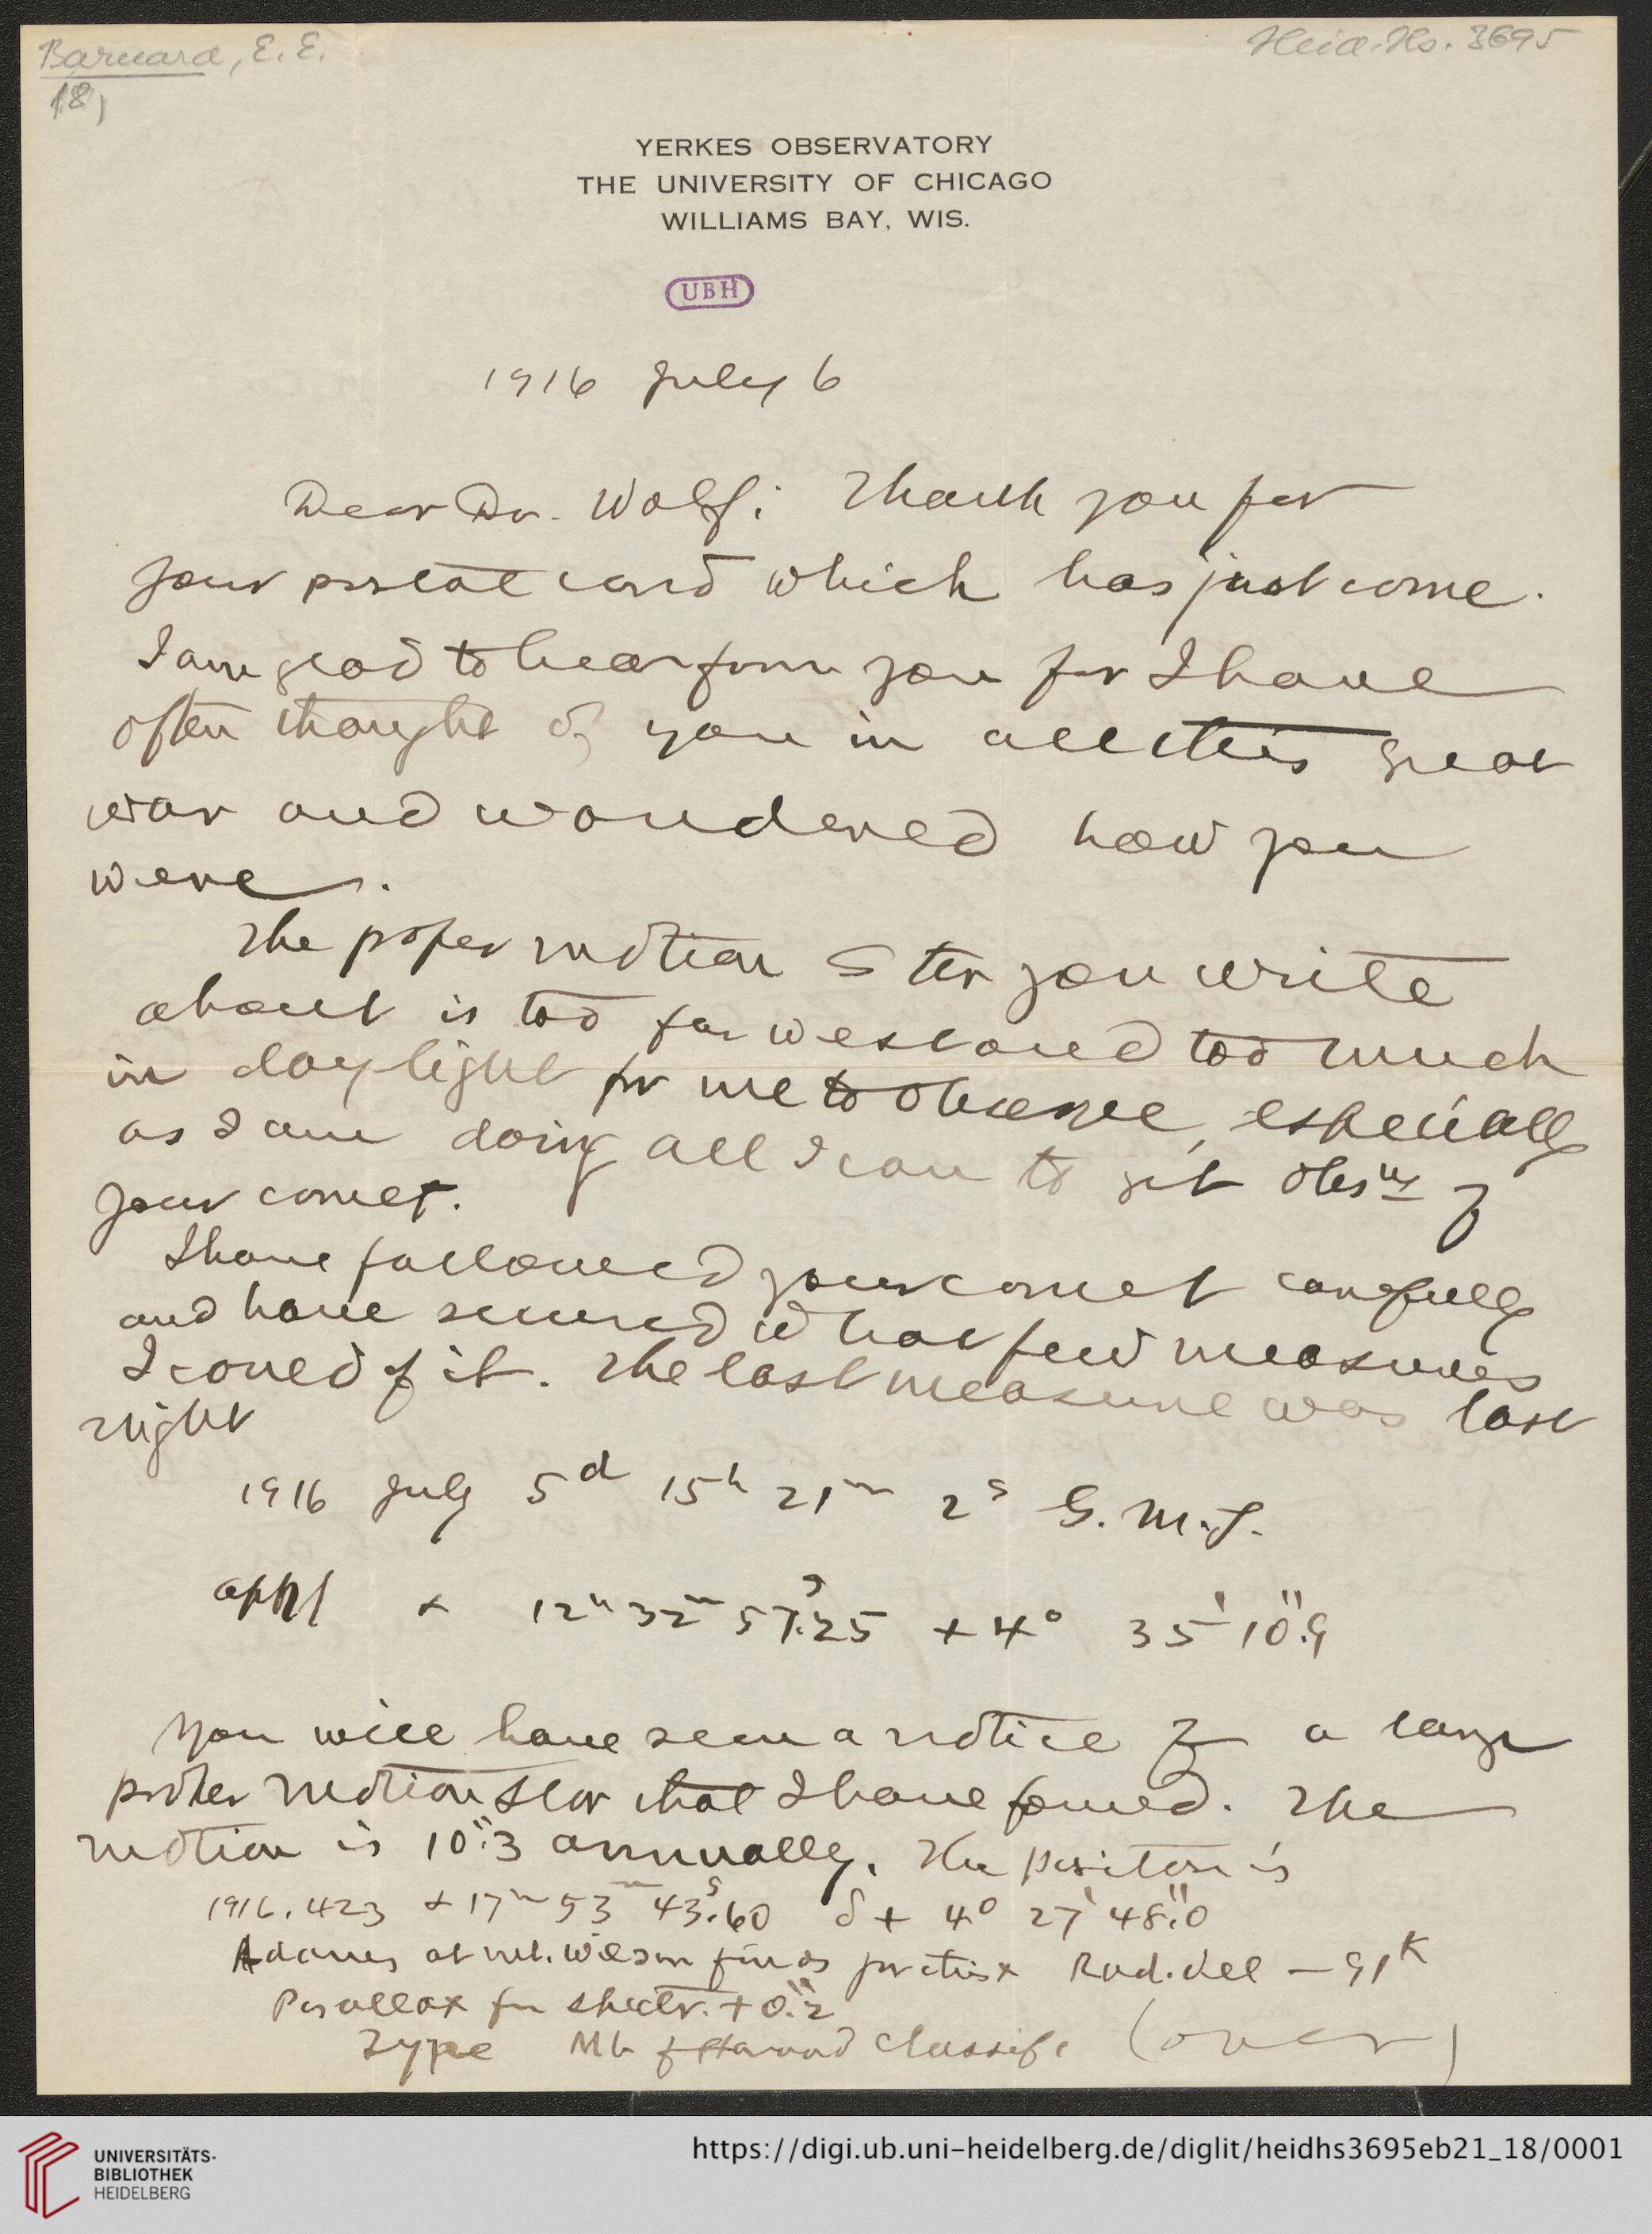 Barnard, E. E.
18)
Heid. Hs. 3695
YERKES OBSERVATORY
THE UNIVERSITY OF CHICAGO
WILLIAMS BAY, WIS.
UBH
1916 July 6
Dear Dr. Wolf: Thank you for
your postal card which has just come.
I am glad to hear from you for I have
often thought of you in all this great
war and wondered how you
were.
The proper motion star you write
about is too far west and too much
in daylight for me to observe, especially
as I am doing all I can to get obsns of
your comet.
I have followed your comet carefully
and have secured what few measures
I could of it. The last measure was last
night
1916 July 5d 15h 21m 2s G.M.T.
appt α 12h 32m 57s.25 + 4° 35' 10".9
You will have seen a notice of a large
proper motion star that I have found. The
motion is 10".3 annually. The position is
1916.423 α 17h 53m 43s.60 δ + 4° 27' 48".0
Adams at Mt. Wilson finds for this * Rad. Vel - 91K
Parallax fm spectr. + 0".2
Type Mb of Harvard classif. (over)
UNIVERSITÄTS-
BIBLIOTHEK
HEIDELBERG
https://digi.ub.uni-heidelberg.de/diglit/heidhs3695eb21_18/0001